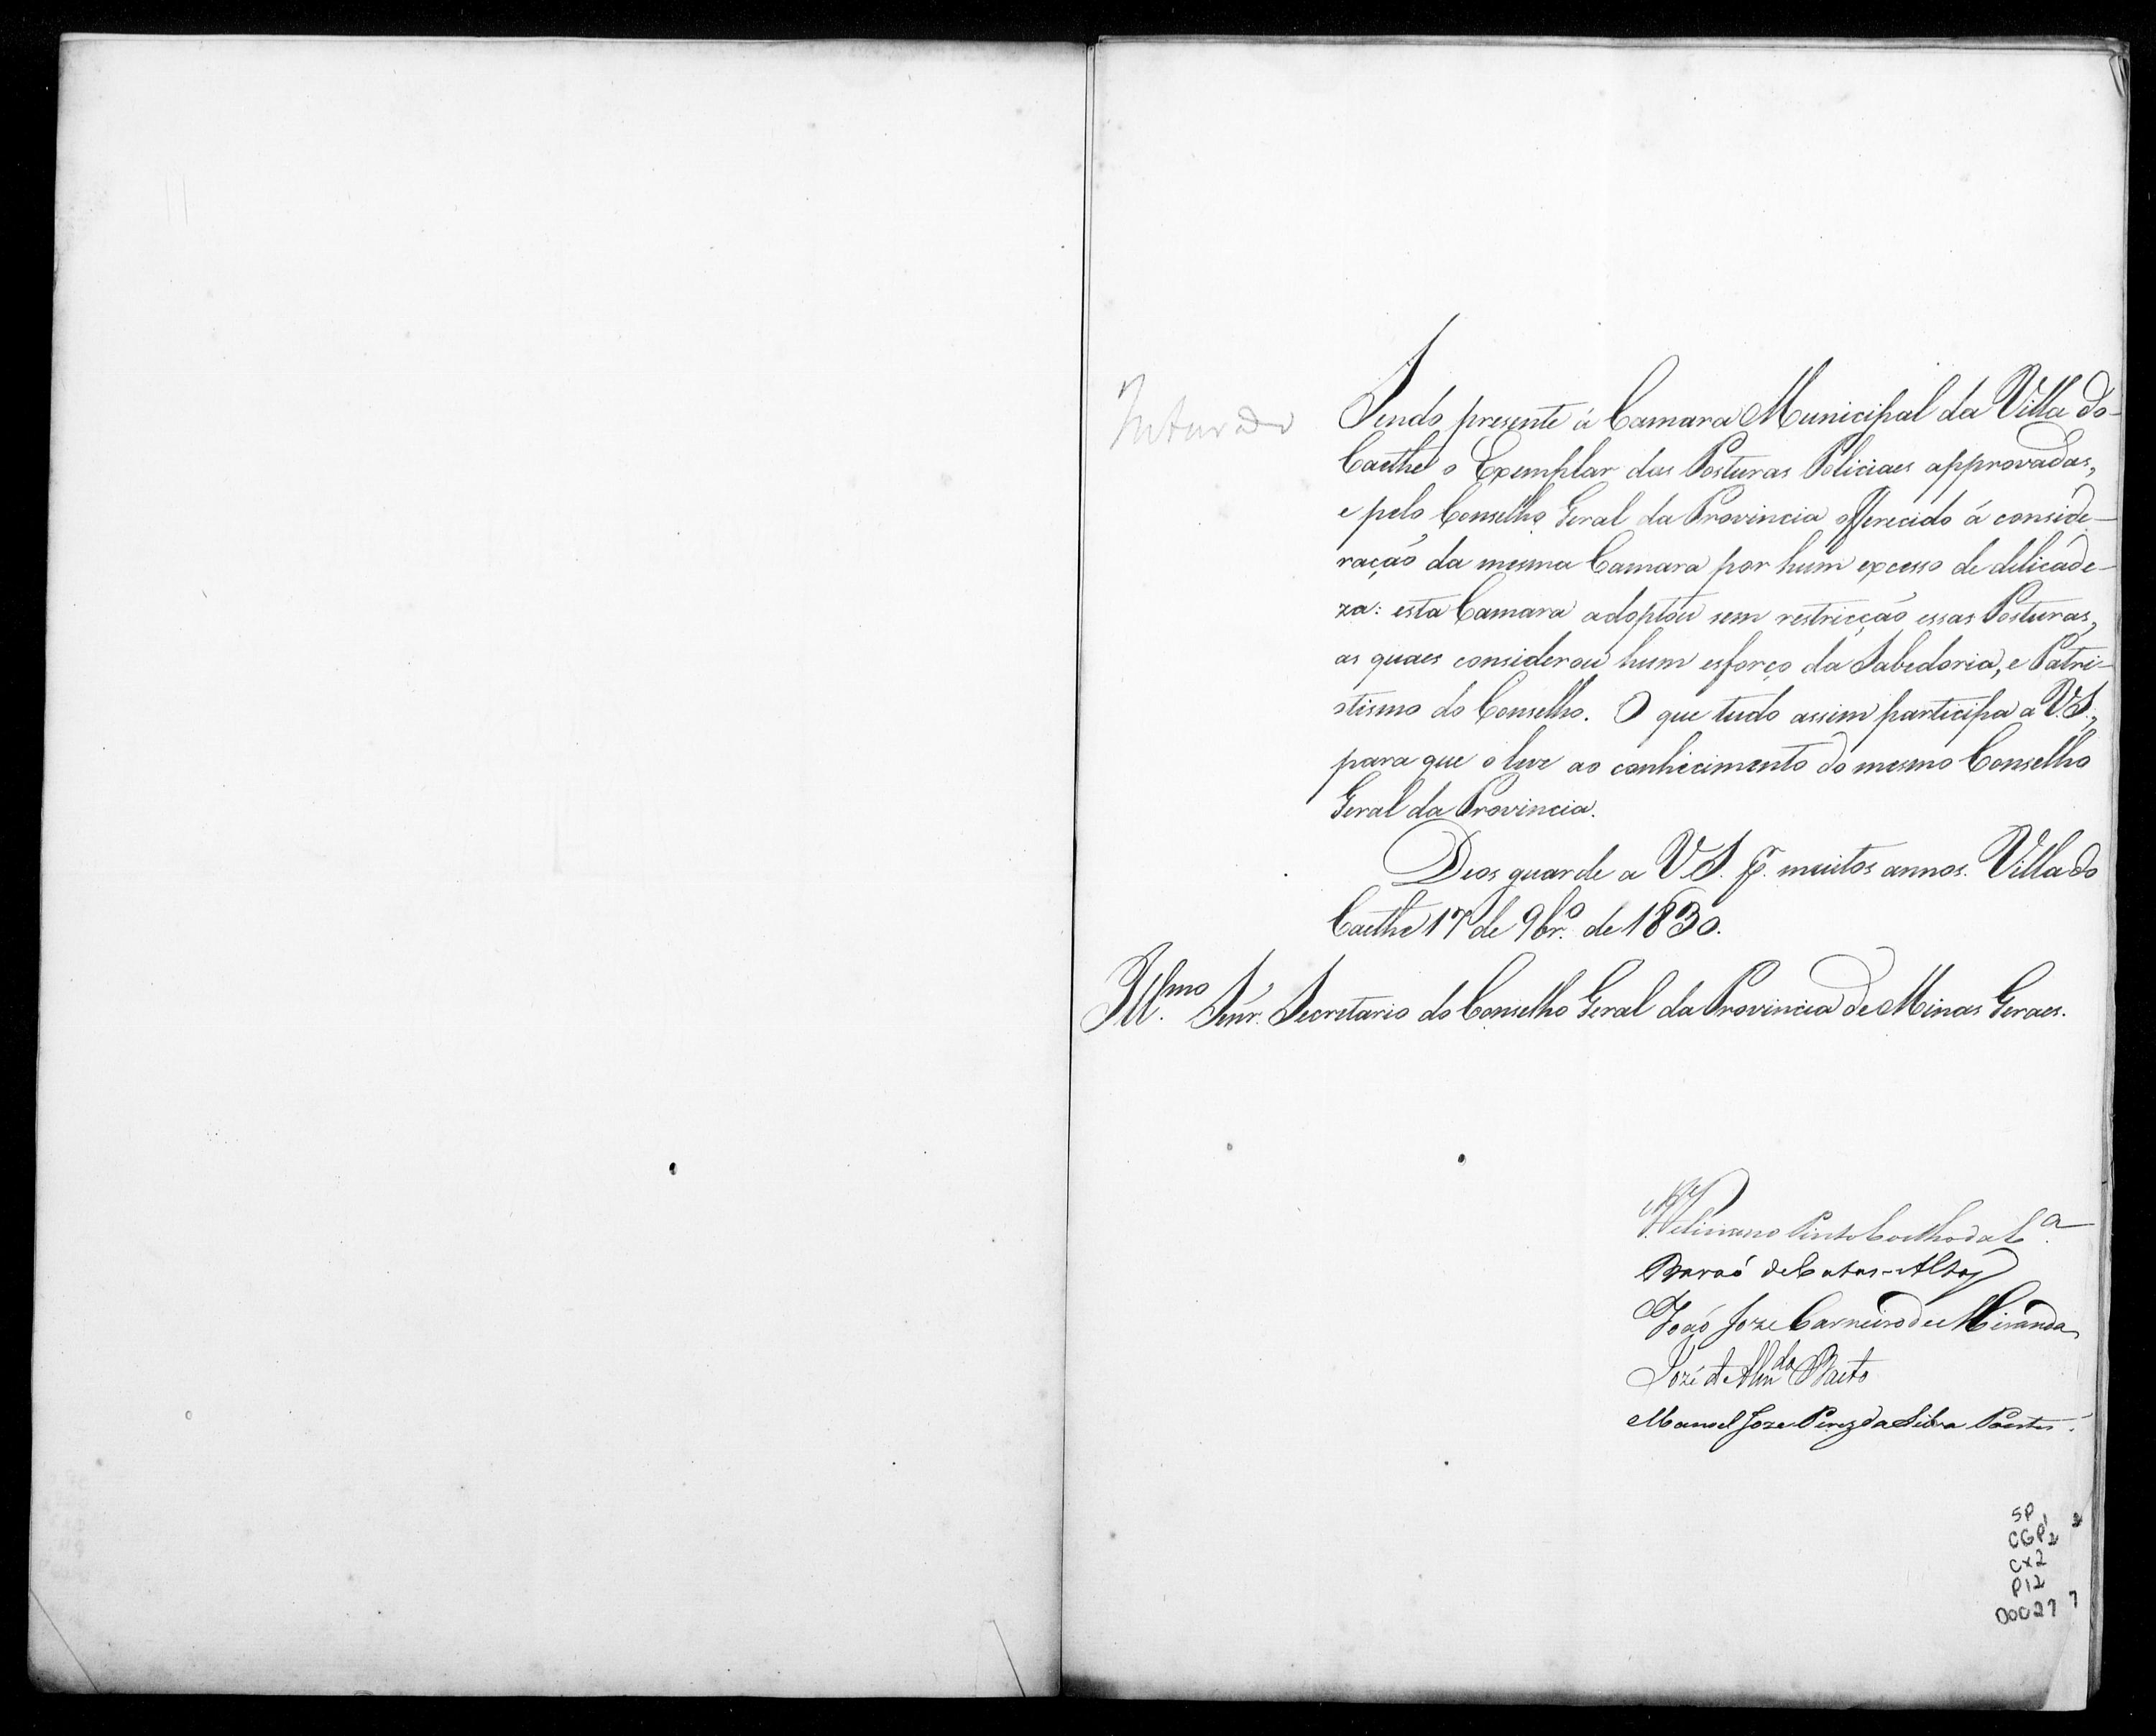 Inteirado
Sendo presente á Camara Municipal da Villa do
Caethé o Exemplar das Posturas Policiaes approvadas,
e pelo Conselho Geral da Provincia offerecido á conside-
ração da mesma Camara por hum excesso de delicade-
za: esta Camara adoptou sem restricção essas Posturas,
as quaes considerou hum esforço da Sabedoria, e Patri-
otismo do Conselho. O que tudo assim participa a V.S.,
para que o leve ao conhecimento do mesmo Conselho
Geral da Provincia.
Deos guarde a V.S. p.r muitos annos. Villa do
Caethe 17 de 9br.o de 1830.
Ill.mo Senr. Secretario do Conselho Geral da Provincia de Minas Geraes.
Pinto Coelho da C.a
Barão de Catas-Altas
João Joze Carneiro de Miranda
José de Alm.da Baeto
Manoel Joze Pires da Silva Pontes.
SP
CGP1
CX2
P12
D0027